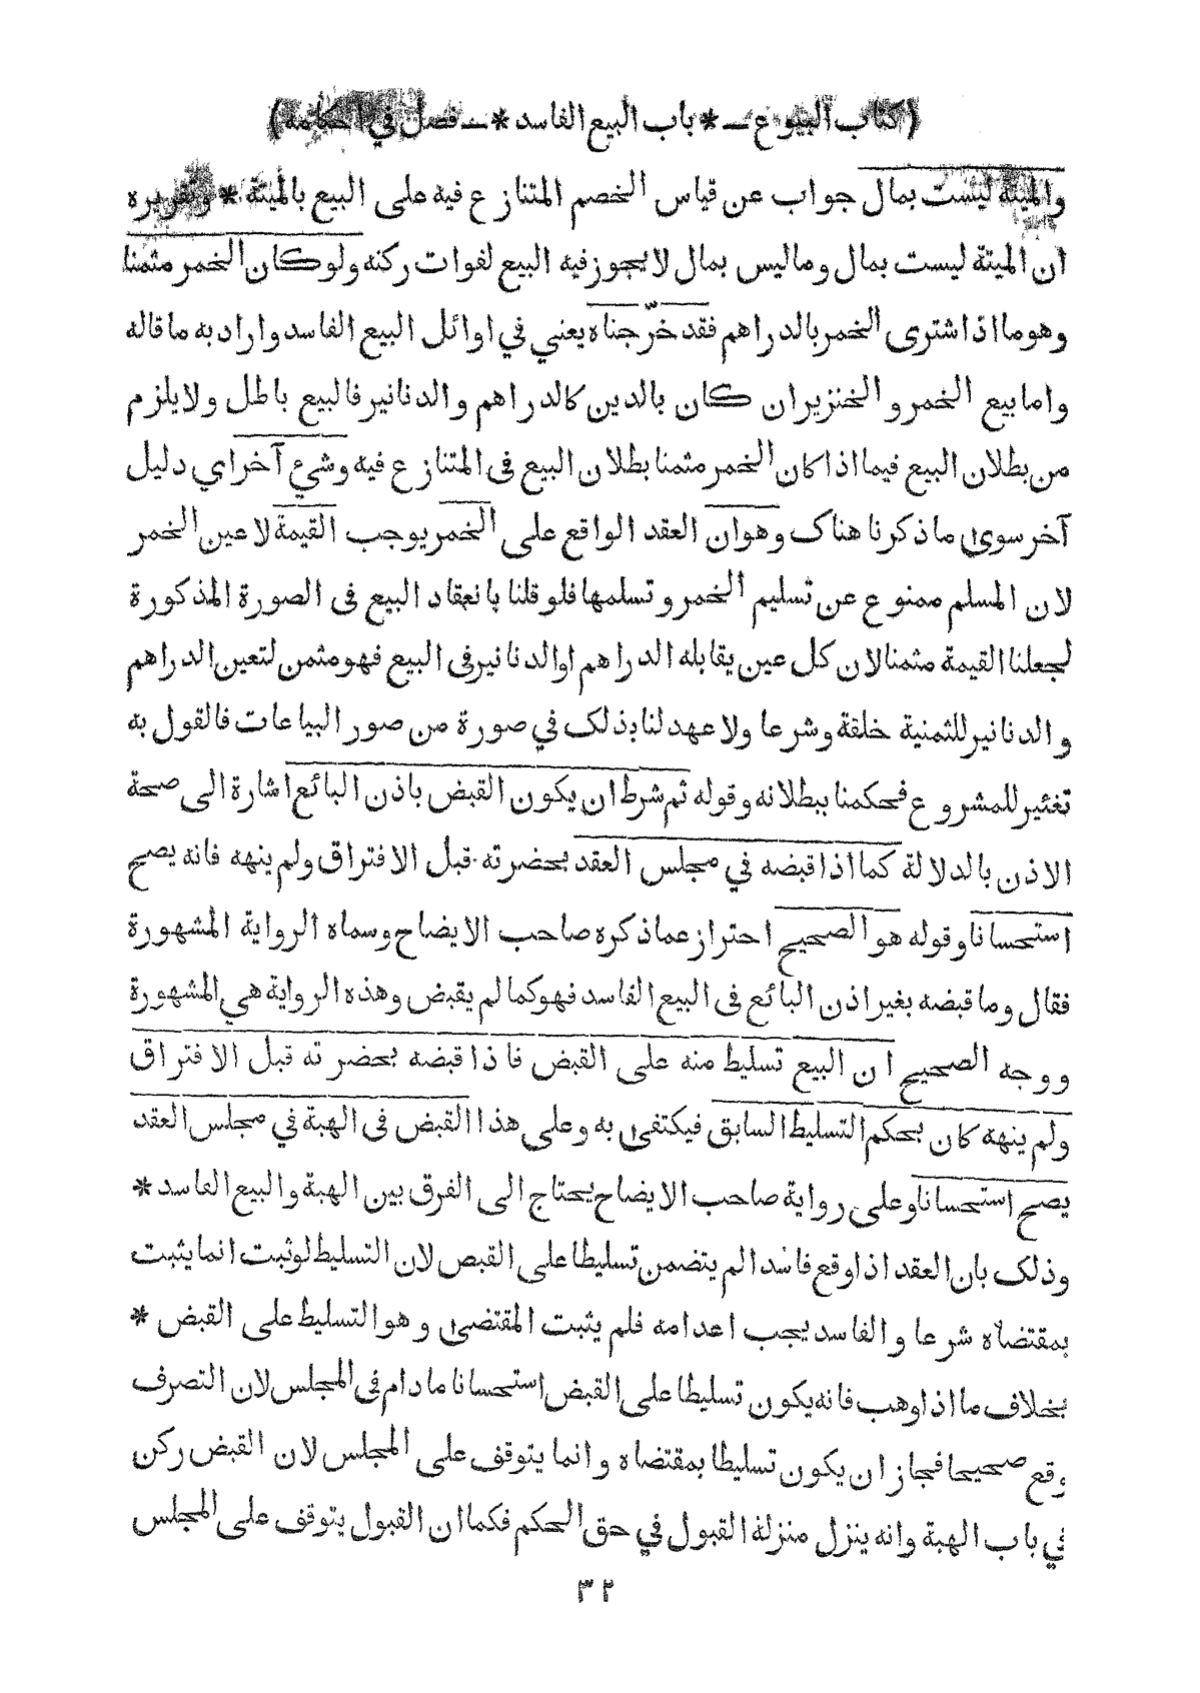 ( كتاب البيوع — * باب البيع الفاسد * — فصل في احكامه )
والميتة ليست بمال جواب عن قياس الخصم المتنازع فيه على البيع بالميتة * وتقريره
ان الميتة ليست بمال وماليس بمال لا يجوز فيه البيع لفوات ركنه ولو كان الخمر مثمنا
وهو ما اذا اشترى الخمر بالدراهم فقد خرّجناه يعني في اوائل البيع الفاسد واراد به ما قاله
واما بيع الخمر و الخنزير ان كان بالدين كالدراهم والدنانير فالبيع باطل ولا يلزم
من بطلان البيع فيما اذا كان الخمر مثمنا بطلان البيع فى المتنازع فيه وشيء آخر اي دليل
آخر سوى ما ذكرنا هناك وهو ان العقد الواقع على الخمر يوجب القيمة لا عين الخمر
لان المسلم ممنوع عن تسليم الخمر و تسلمها فلو قلنا بانعقاد البيع فى الصورة المذكورة
لجعلنا القيمة مثمنا لان كل عين يقابله الدراهم او الدنانير فى البيع فهو مثمن لتعين الدراهم
و الدنانير للثمنية خلقة وشرعا ولا عهد لنا بذلك في صورة من صور البياعات فالقول به
تغئير للمشروع فحكمنا ببطلانه وقوله ثم شرط ان يكون القبض باذن البائع اشارة الى صحة
الاذن بالدلالة كما اذا قبضه في مجلس العقد بحضرته قبل الافتراق ولم ينهه فانه يصح
استحسانا وقوله هو الصحيح احتراز عما ذكره صاحب الايضاح وسماه الرواية المشهورة
فقال وما قبضه بغير اذن البائع فى البيع الفاسد فهو كما لم يقبض وهذه الرواية هي المشهورة
ووجه الصحيح ان البيع تسليط منه على القبض فاذا قبضه بحضرته قبل الافتراق
ولم ينهه كان بحكم التسليط السابق فيكتفى به وعلى هذا القبض فى الهبة في مجلس العقد
يصح استحسانا وعلى رواية صاحب الايضاح يحتاج الى الفرق بين الهبة والبيع الفاسد *
وذلك بان العقد اذا وقع فاسدا لم يتضمن تسليطا على القبص لان التسليط لو ثبت انما يثبت
بمقتضاه شرعا والفاسد يجب اعدامه فلم يثبت المقتضى وهو التسليط على القبض *
بخلاف ما اذا وهب فانه يكون تسليطا على القبض استحسانا مادام فى المجلس لان التصرف
وقع صحيحا فجاز ان يكون تسليطا بمقتضاه وانما يتوقف على المجلس لان القبض ركن
في باب الهبة وانه ينزل منزلة القبول في حق الحكم فكما ان القبول يتوقف على المجلس
٣٢